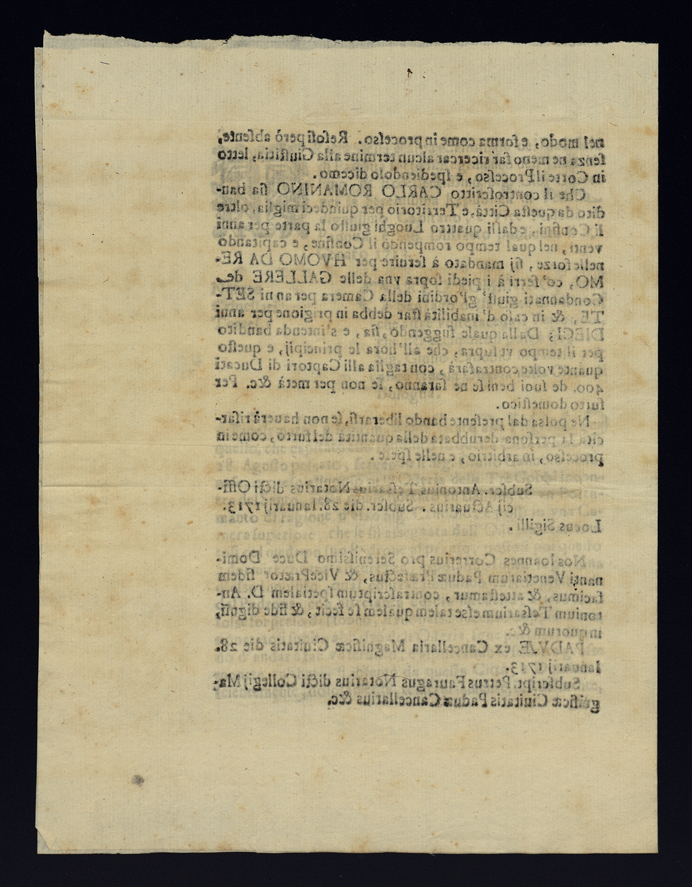 nel modo, e forma come in processo. Resosi però absente,
senza ne meno far ricercar alcun termine alla Giustitia, letto
in Corte il Processo, e spediendolo dicemo.
Che il controscritto CARLO ROMANINO sia ban-
dito da questa Città, e Territorio per quindeci miglia, oltre
l' Confini, e dalli quattro Luoghi giusto la parte per anni
venti, nel qual tempo rompendo il Confine, e capitando
nelle forze, sij mandato à seruire per HVOMO DA RE-
MO, co' ferri à i piedi sopra vna delle GALLERE de
Condannati giust' gl'ordini della Camera per anni SET-
TE, & in caso d'inabilità star debba in prigione per anni
DIECI; Dalla quale fuggendo, sia, e s'intenda bandito
per il tempo vt supra, che all'hora le principij, e questo
quante volte contrafarà, con taglia alli Captori di Ducati
400. de suoi beni se ne saranno, se non per metà &c. Per
furto domestico.
Ne possa dal presente bando liberarsi, se non hauerà risar-
cita la persona derubbata della quantità del furto, come in
processo, in arbitrio, e nelle spese.
Subscr. Antonius Tessarius Notarius dicti Offi-
cij Actuarius. Subscr. die 28. Ianuarij 1713.
Locus Sigilli.
Nos Ioannes Correrius pro Serenissimo Duce Domi-
nanti Venetiarum Paduæ Præfectus, & Vice Prætor fidem
facimus, & attestamur, contrascriptum spetialem D. An-
tonium Tessarium esse talem qualem se fecit, & fide digni,
in quorum &c.
PADVÆ ex Cancellaria Magnificæ Ciuitatis die 28.
Ianuarij 1713.
Subscript. Petrus Fauragus Notarius dicti Collegij Ma-
gnificæ Ciuitatis Paduæ Cancellarius &c.